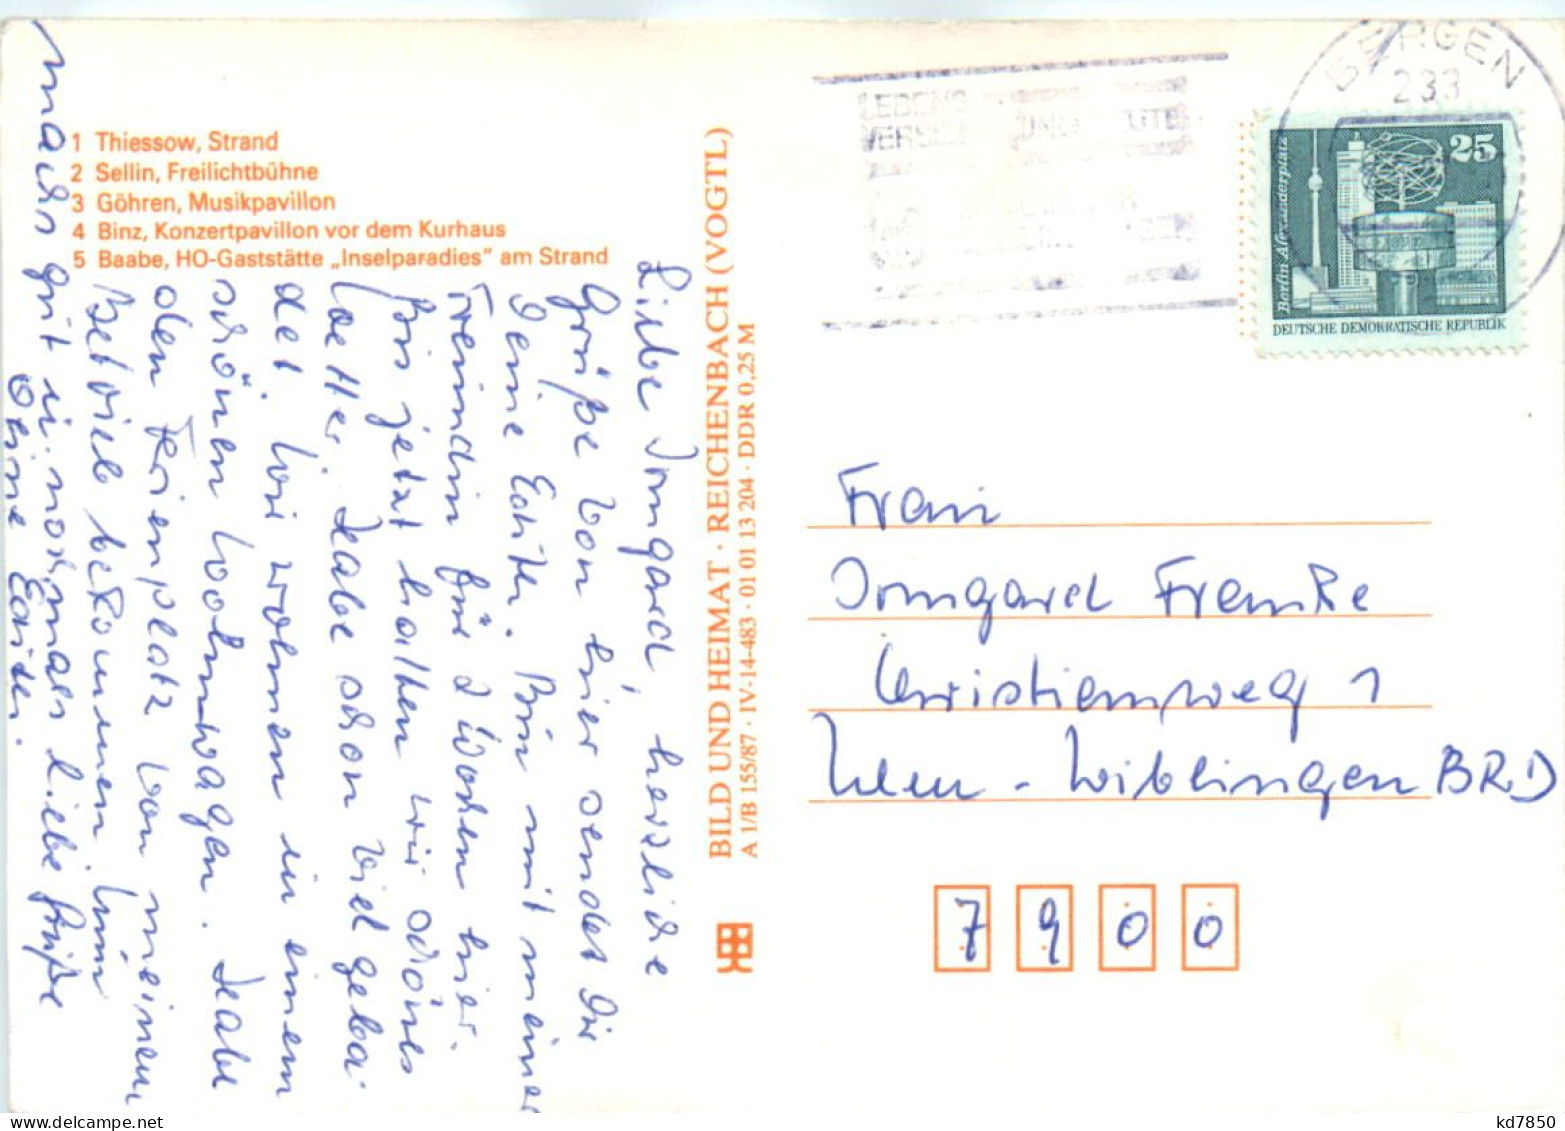 1 Thiessow, Strand
2 Sellin, Freilichtbühne
3 Göhren, Musikpavillon
4 Binz, Konzertpavillon vor dem Kurhaus
5 Baabe, HO-Gaststätte „Inselparadies" am Strand
Liebe Irmgard, herzliche
Grüße von hier sendet Dir
Deine Edith. Bin mit meiner
Freundin für 2 Wochen hier.
Bis jetzt hatten wir schönes
Wetter. Habe schon viel geba-
det. Wir wohnen in einem
schönen Wohnwagen. Habe
den Ferienplatz von meinem
Betrieb bekommen. Wie
machs gut u. nochmals liebe Grüße
Deine Edith.
BILD UND HEIMAT · REICHENBACH (VOGTL)
A 1/B 155/87 · IV-14-483 · 01 01 13 204 · DDR 0,25 M
LEBENS
BERGEN
233
25
Berlin-Alexanderplatz
DEUTSCHE DEMOKRATISCHE REPUBLIK
Frau
Irmgard Franke
Christiansweg 1
Ulm - Wiblingen BRD
7900
kd7850